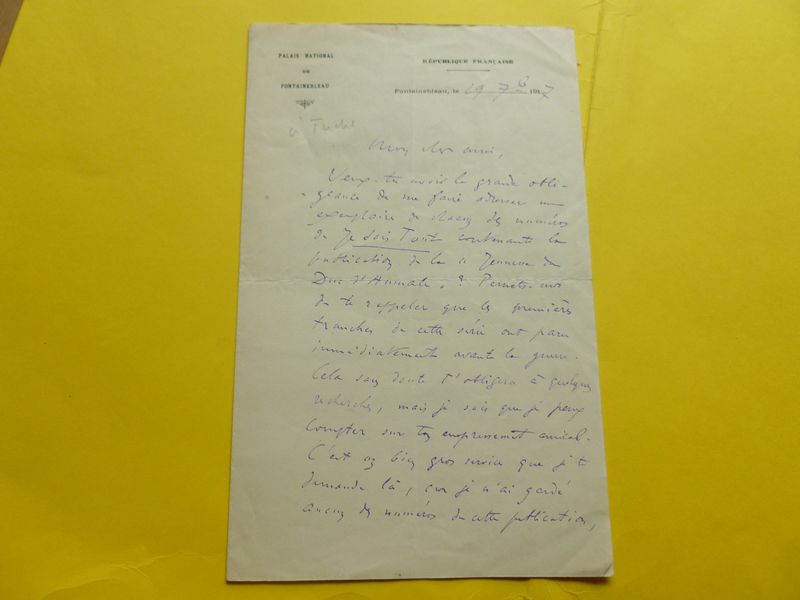 PALAIS NATIONAL
DE
FONTAINEBLEAU
RÉPUBLIQUE FRANÇAISE
Fontainebleau, le 19 7b 1917
à
Mon cher ami,
Veux-tu avoir la grande obli-
geance de me faire adresser un
exemplaire de chacun des numéros
de Je Sais Tout contenant la
publication de la « Jeunesse du
Duc d'Aumale » ? Permets-moi
de te rappeler que les premières
tranches de cette série ont paru
immédiatement avant la guerre.
Cela sans doute t'obligera à quelques
recherches, mais je sais que je peux
compter sur ton empressement amical.
C'est un bien gros service que je te
demande là, car je n'ai gardé
aucun des numéros de cette publication,